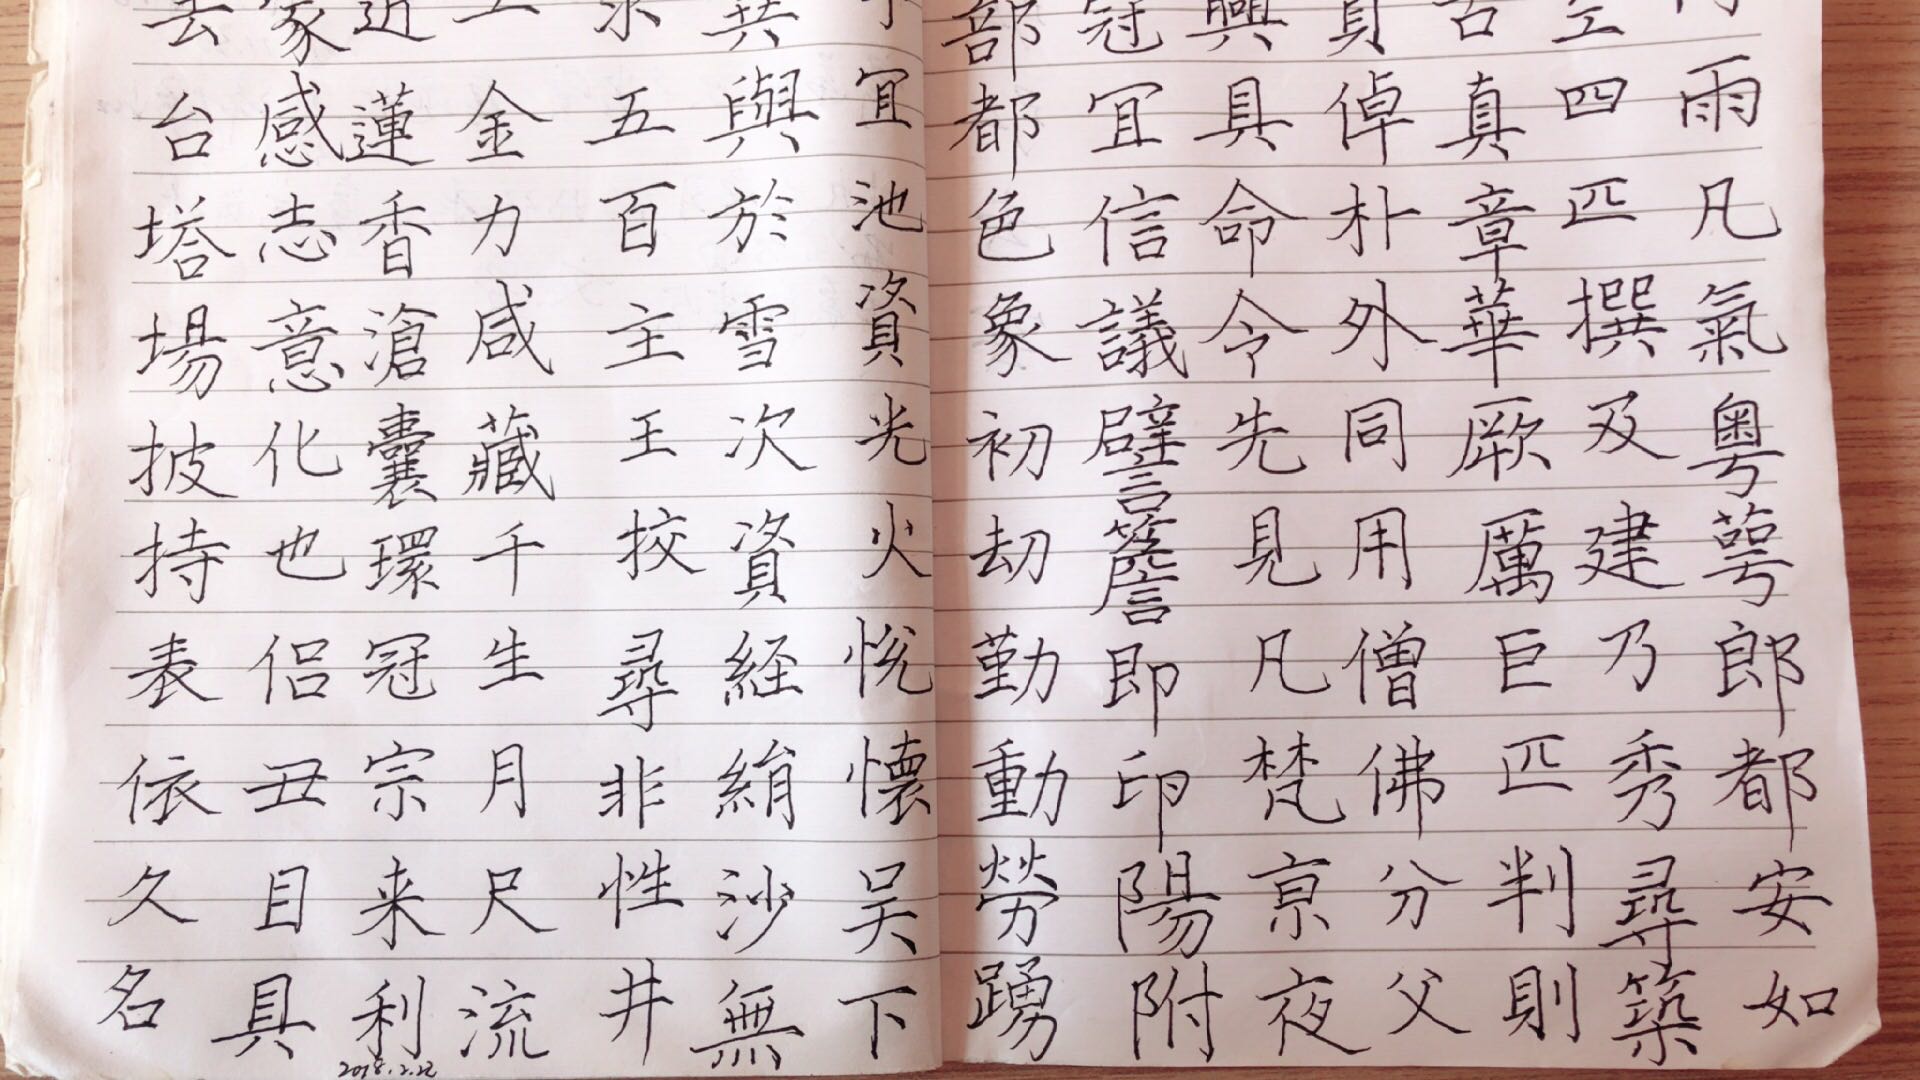 雨凡氣粤萼郎都安如
四匹撰及建乃秀尋築
真章華厥厲巨匹判則
倬朴外同用僧佛分父
興具命令先見凡梵亰夜
冠冝信議譬簷即印陽附
部都色象初劫勤動勞踴
冝池資光火悦懷吴下
共與於雪次資経絹沙無
五百主王挍尋非性井
金力咸藏千生月尺流
近蓮香滄囊環冠宗来利
家感志意化也侣丑目具
去台塔場披持表依久名
2018.2.22